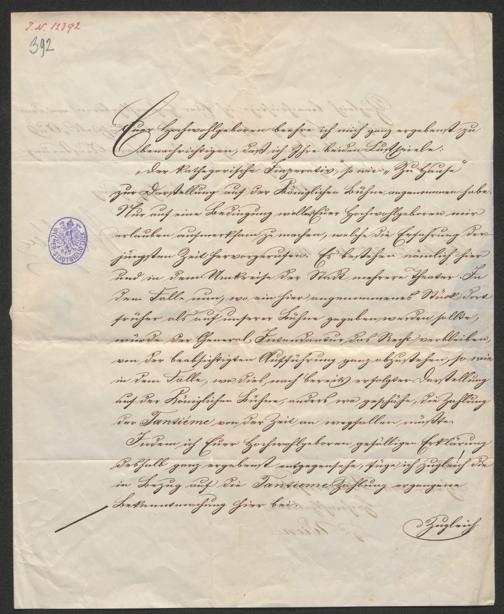 J. N. 12392
392
Euer Hochwohlgeboren beehre ich mich ganz ergebenst zu
benachrichtigen, daß ich Ihre beiden Lustspiele:
„Der kathegorische Imperativ“, so wie „Zu Hause“
zur Darstellung auf der Königlichen Bühne angenommen habe.
Nur auf eine Bedingung wollen Euer Hochwohlgeboren mir
erlauben aufmerksam zu machen, welche die Erfahrung der
jüngsten Zeit hervorgerufen. Es bestehen nämlich hier
und in dem Umkreise der Stadt mehrere Theater. In
dem Falle nun, wo ein hier angenommenes Stück, dort
früher als auf unserer Bühne gegeben werden sollte,
würde der General-Intendantur das Recht verbleiben,
von der beabsichtigten Aufführung ganz abzustehen, so wie
in dem Falle, wo dies nach bereits erfolgter Darstellung
auf der Königlichen Bühne, anders wo geschähe, die Zahlung
der Tantieme von der Zeit an wegfallen müßte.
Indem ich Euer Hochwohlgeboren gefälligen Erklärung
deshalb ganz ergebenst entgegensehe, füge ich zugleich die
in Bezug auf die Tantieme Zahlung ergangene
Bekanntmachung hier bei.
Zugleich